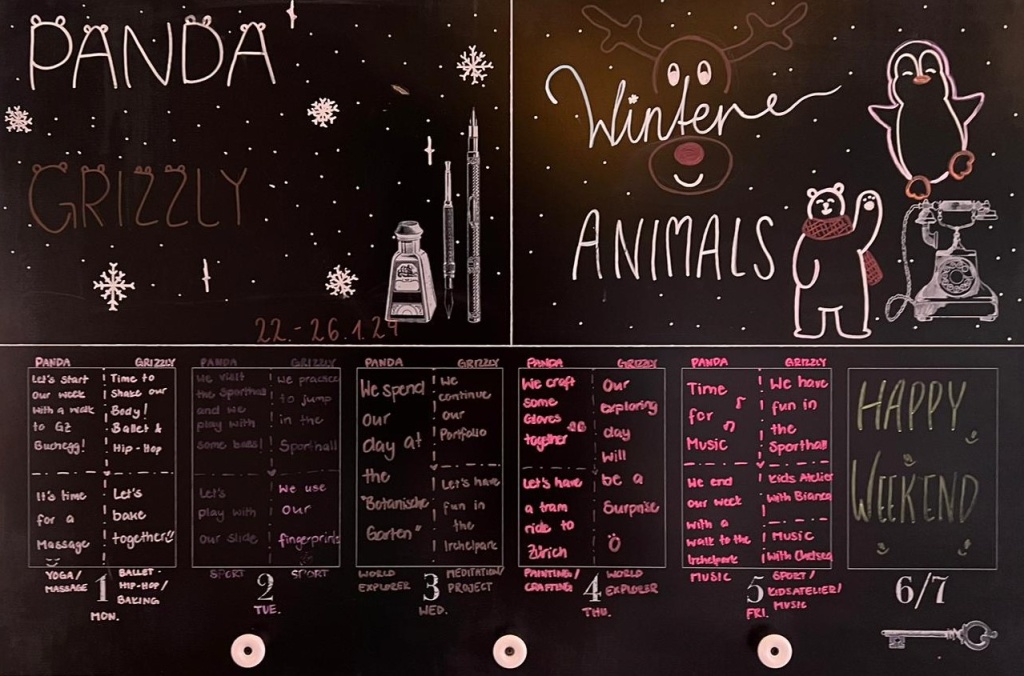 PANDA
GRIZZLY
22. - 26.1.24
Winter
ANIMALS
PANDA
Let's start
our week
with a walk
to GZ
Buchegg!
It's time
for a
Massage
YOGA/
MASSAGE
GRIZZLY
Time to
shake our
Body!
Ballet &
Hip-Hop
Let's
bake
together!!
BALLET-
HIP-HOP/
BAKING
1
MON.
PANDA
We visit
the Sporthall
and we
play with
some balls!
Let's
play with
our slide
SPORT
GRIZZLY
We practice
to jump
in the
Sporthall
We use
our
fingerprint
SPORT
2
TUE.
PANDA
We spend
our
day at
the
"Botanische
Garten"
WORLD
EXPLORER
GRIZZLY
We
continue
our
Portfolio
Let's have
fun in
the
Irchelpark
MEDITATION/
PROJECT
3
WED.
PANDA
We craft
some
Gloves
together
Let's have
a tram
ride to
Zürich
PAINTING/
CRAFTING
GRIZZLY
Our
exploring
day
will
be a
Surprise
Ö
WORLD
EXPLORER
4
THU.
PANDA
Time
for
Music
We end
our week
with a
walk to the
Irchelpark
MUSIC
GRIZZLY
We have
fun in
the
Sporthall
Kids Atelier
with Bianca
Music
with Chelsea
SPORT/
KIDSATELIER/
MUSIC
5
FRI.
HAPPY
WEEKEND
6/7